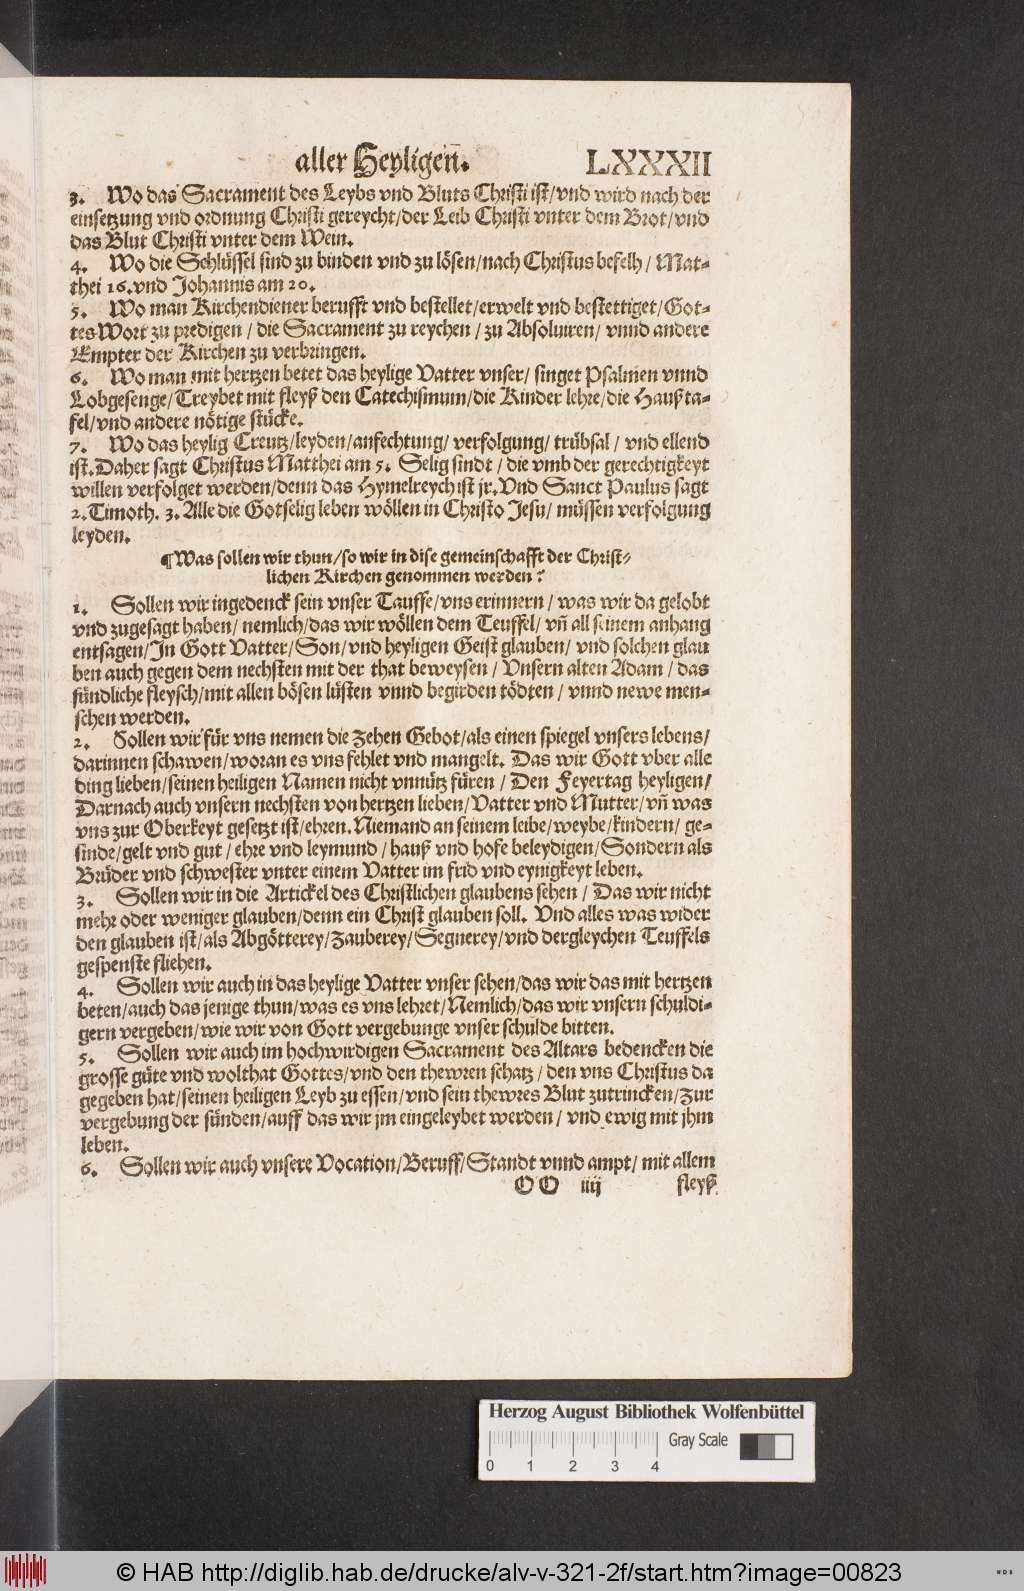 aller Heyligen̄. LXXXII
3. Wo das Sacrament des Leybs vnd Bluts Christi ist/vnd wird nach der
einsetzung vnd ordnung Christi gereycht/der Leib Christi vnter dem Brot/vnd
das Blut Christi vnter dem Wein.
4. Wo die Schlüssel sind zu binden vnd zu lösen/nach Christus befelh/ Mat-
thei 16.vnd Johannis am 20.
5. Wo man Kirchendiener berufft vnd bestellet/erwelt vnd bestettiget/Got-
tes Wort zu predigen/ die Sacrament zu reychen/ zu Absoluiren/ vnnd andere
Empter der Kirchen zu verbringen.
6. Wo man mit hertzen betet das heylige Vatter vnser/ singet Psalmen vnnd
Lobgesenge/Treybet mit fleyß den Catechismum/die Kinder lehre/die Haußta-
fel/vnd andere nötige stücke.
7. Wo das heylig Creutz/leyden/anfechtung/ verfolgung/ trübsal/ vnd ellend
ist.Daher sagt Christus Matthei am 5. Selig sindt/ die vmb der gerechtigkeyt
willen verfolget werden/denn das Hymelreych ist jr.Vnd Sanct Paulus sagt
2.Timoth. 3.Alle die Gotselig leben wöllen in Christo Jesu/ müssen verfolgung
leyden.
¶Was sollen wir thun/so wir in dise gemeinschafft der Christ-
lichen Kirchen genommen werden?
1. Sollen wir ingedenck sein vnser Tauffe/vns erinnern/ was wir da gelobt
vnd zugesagt haben/ nemlich/das wir wöllen dem Teuffel/ vñ all seinem anhang
entsagen/In Gott Vatter/Son/vnd heyligen Geist glauben/ vnd solchen glau
ben auch gegen dem nechsten mit der that beweysen/ Vnsern alten Adam/ das
sündliche fleysch/mit allen bösen lüsten vnnd begirden tödten/ vnnd newe men-
schen werden.
2. Sollen wir für vns nemen die zehen Gebot/als einen spiegel vnsers lebens/
darinnen schawen/woran es vns fehlet vnd mangelt. Das wir Gott vber alle
ding lieben/seinen heiligen Namen nicht vnnütz füren/ Den Feyertag heyligen/
Darnach auch vnsern nechsten von hertzen lieben/Vatter vnd Mutter/vñ was
vns zur Oberkeyt gesetzt ist/ehren.Niemand an seinem leibe/weybe/kindern/ ge-
sinde/gelt vnd gut/ ehre vnd leymund/ hauß vnd hofe beleydigen/Sondern als
Brüder vnd schwester vnter einem Vatter im frid vnd eynigkeyt leben.
3. Sollen wir in die Artickel des Christlichen glaubens sehen/ Das wir nicht
mehr oder weniger glauben/denn ein Christ glauben soll. Vnd alles was wider
den glauben ist/als Abgötterey/Zauberey/Segnerey/vnd dergleychen Teuffels
gespenste fliehen.
4. Sollen wir auch in das heylige Vatter vnser sehen/das wir das mit hertzen
beten/auch das jenige thun/was es vns lehret/Nemlich/das wir vnsern schuldi-
gern vergeben/wie wir von Gott vergebunge vnser schulde bitten.
5. Sollen wir auch im hochwirdigen Sacrament des Altars bedencken die
grosse güte vnd wolthat Gottes/vnd den thewren schatz/ den vns Christus da
gegeben hat/seinen heiligen Leyb zu essen/vnd sein thewres Blut zutrincken/zur
vergebung der sünden/auff das wir jm eingeleybet werden/ vnd ewig mit jhm
leben.
6. Sollen wir auch vnsere Vocation/Beruff/Standt vnnd ampt/ mit allem
OO iiij fleyß
Herzog August Bibliothek Wolfenbüttel
Gray Scale
0 1 2 3 4
© HAB http://diglib.hab.de/drucke/alv-v-321-2f/start.htm?image=00823